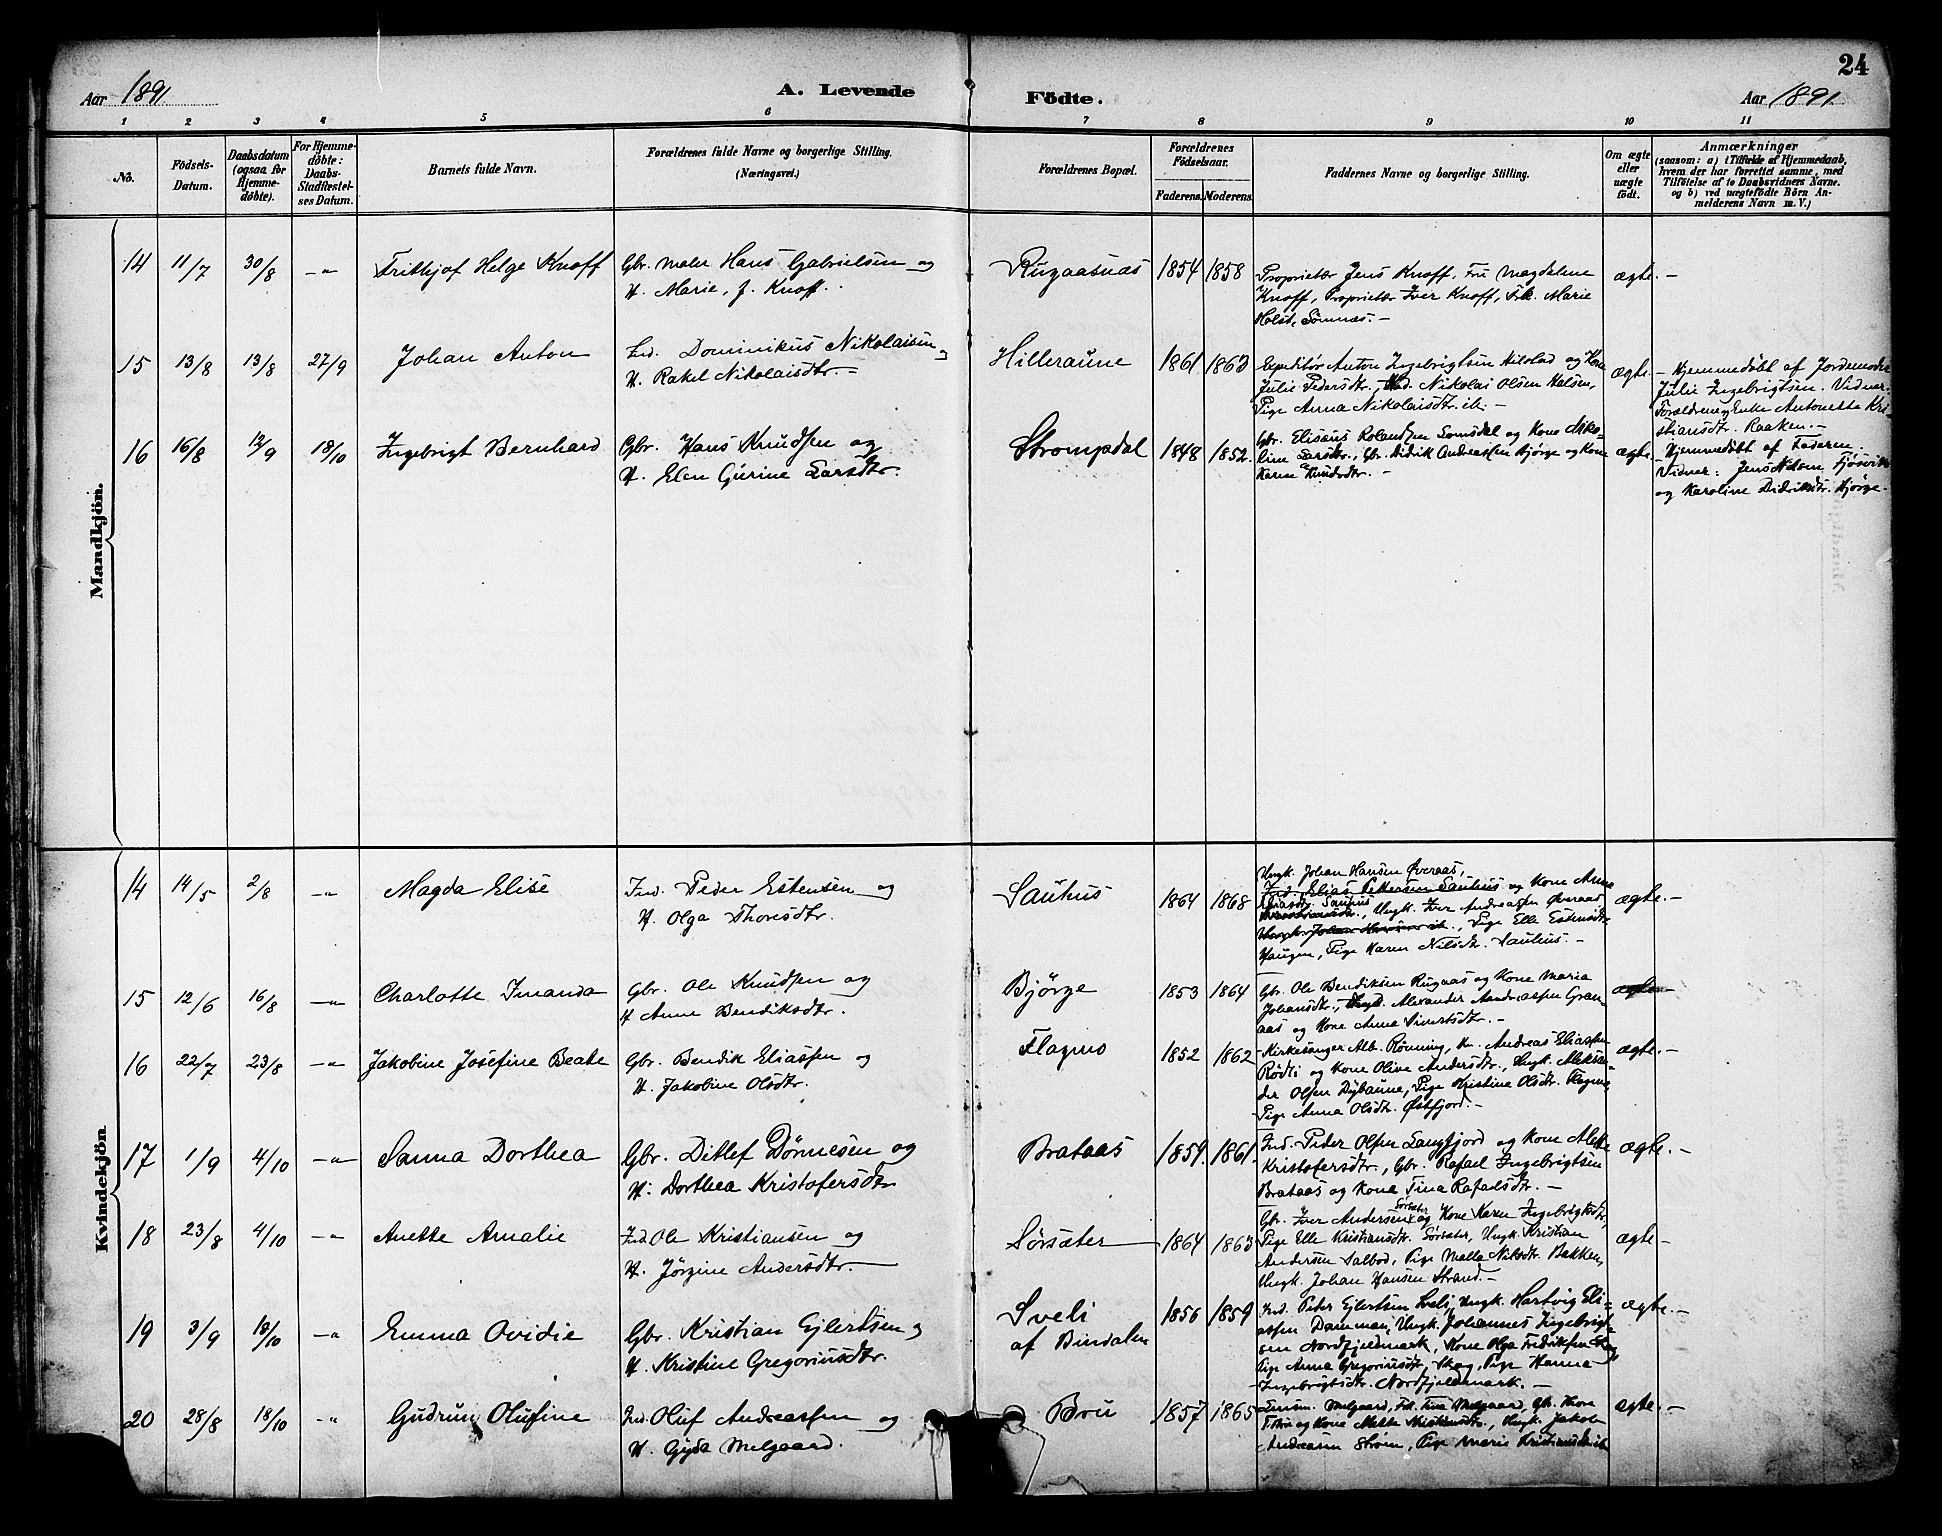 24
Aar 1891 A. Levende Födte. Aar 1891.
1 2 3 4 5 6 7 8 9 10 11
No.
Födsels-
Datum.
Daabsdatum
(ogsaa for
Hjemme-
döbte).
For Hjemme-
döbte:
Daabs-
Stadfæstel-
ses Datum.
Barnets fulde Navn.
Forældrenes fulde Navne og borgerlige Stilling.
(Næringsvei.)
Forældrenes Bopæl.
Forældrenes
Födselsaar.
Faderens. Moderens.
Faddernes Navne og borgerlige Stilling.
Om ægte
eller
uægte
födt.
Anmærkninger
(saasom: a) i Tilfælde af Hjemmedaab,
hvem der har forrettet samme, med
Tilföielse af to Daabsvidners Navne.
og b) ved uægtefödte Börn An-
melderens Navn m. V.)
Mandkjön.
14 11/7 30/8 -"- Frithjof Helge Knoff
Gbr. Maler Hans Gabrielsen og
H. Marie, J. Knoff.
Rugaasnæs 1854 1858
Proprietær Jens Knoff, Fru Magdalene
Knoff, Proprietær Iver Knoff, Frk. Marie
Holst, Sömnæs.-
ægte.-
15 13/8 13/8 27/9 Johan Anton
Ind. Dominikus Nikolaisen og
H. Rakel Nikolaisdtr.-
Hilleraune 1861 1863
Expeditör Anton Ingebrigtsen Hilstad og Kone
Julie Pedersdtr., Nikolas Olsen Halsen,
Pige Anna Nikolaisdtr. ib.-
ægte.
- Hjemmedöbt af Jordemoder
Julie Ingebrigtsen. Vidner:
Forældrene og Enke Antonette Kri-
stiansdtr. Raaken.-
16 16/8 12/9 18/10 Ingebrigt Bernhard
Gbr. Hans Knudsen og
H. Elen Gurine Larsdtr.
Strompdal 1848 1852.
Gbr. Elisæus Rolandsen Somsdal og Kone Niko-
line Larsdtr., Gbr. Didrik Andreassen Bjørge og Kone
Karen Knudsdtr.-
ægte.
- Hjemmedöbt af Faderen.
Vidner: Jens Nilsen Fjøsvik
og Karoline Didriksdtr. Bjørge.
Kvindekjön
14 14/5 2/8 -"- Magda Elise
Ind. Peder Estensen og
H. Olga Thoresdtr.
Sauhus 1864 1868
Ungk. Johan Hansen Øveraas,
Ind. Elias Pettersen Sauhus og Kone Anne
Eliasdtr. Sauhus, Ungk. Iver Andreassen Øveraas,
Ungk. Johan Hansen ib., Pige Elle Estensdtr.
Haugen, Pige Karen Nilsdtr. Sauhus.-
ægte.-
15 12/6 16/8 -"- Charlotte Imanda
Gbr. Ole Knudsen og
H. Anne Bendiksdtr.
Bjørge 1853 1864
Gbr. Ole Bendiksen Rugaas og Kone Maria
Johansdtr., Alexander Andreassen Gran-
aas og Kone Anna Sivertsdtr.-
ægte-
16 22/7 23/8 -"- Jakobine Josefine Beate
Gbr. Bendik Eliassen og
H. Jakobine Olsdtr.
Flagmo 1852 1862
Kirkesanger Alb. Rönning, K. Andreas Eliassen
Rödli og Kone Olive Andersdtr., Ungk. Aleksan-
der Olsen Dybaune, Pige Kristine Olsdtr. Flagmo,
Pige Anna Olsdtr. Østfjord.-
ægte.-
17 1/9 4/10 -"- Sanna Dorthea
Gbr. Ditlef Dönnesen og
H. Dorthea Kristofersdtr.
Brataas 1859. 1861.
Ind. Peder Olsen Langfjord og Kone Alette
Kristofersdtr., Gbr. Rafael Ingebrigtsen
Brataas og Kone Tina Rafaelsdtr.-
ægte.-
18 23/8 4/10 -"- Anette Amalie
Ind. Ole Kristiansen og
H. Jörgine Andersdtr.-
Sørsæter 1864 1863
Gbr. Iver Andersen Sørsæter og Kone Karen Ingebrigtsdtr,
Pige Elle Kristiansdtr. Sørsæter, Ungk. Kristian
Andersen Salbod, Pige Malla Nilsdtr. Bakken,
Ungk. Johan Hansen Strand.-
ægte-
19 3/9 18/10 -"- Emma Ovidie
Gbr. Kristian Ejlertsen og
H. Kristine Gregoriusdtr.
Sveli
af Bindalen
1856 1859
Ind. Peter Ejlertsen Sveli, Ungk. Hartvig Eli-
assen Damman, Ungk. Johannes Ingebrigt-
sen Nordfjeldmark, Kone Olga Fredriksen Skog,
Pige Anna Gregoriusdtr, Skog, Pige Hanna
Ingebrigtsdtr. Nordfjeldmark.-
ægte.-
20 28/8 18/10 -"- Gudrun Olufine
Ind. Oluf Andreassen og
H. Gyda Melgaard.
Bru 1857 1865
Melgaard, Frk. Tina Melgaard, Gbr. Thore
og Kone Mette Kristiansdtr., Ungk. Jakob
Andreasen Ström, Pige Marie Kristiansdtr. ib
ægte.-